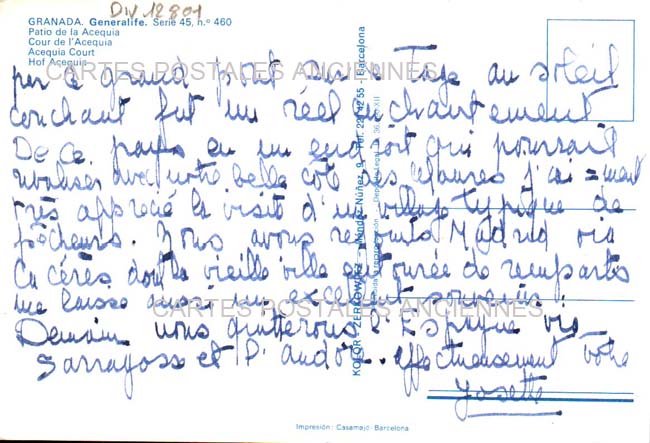 DIV 12801
GRANADA. Generalife. Serie 45, n.º 460
Patio de la Acequia
Cour de l'Acequia
Acequia Court
Hof Acequia
CARTES POSTALES ANCIENNES
per ce grand pont sur le Tage au soleil
couchant fut un réel enchantement
De ce pays en un endroit qui pourrait
avec notre belle côte des j'ai
très apprécié la visite d'un village typique de
pêcheurs. Nous avons Madrid via
Cacérès dont la vieille ville entourée de remparts
me laisse aussi un excellent souvenir.
CARTES POSTALES ANCIENNES
Demain nous quitterons l'Espagne via
Sarragosse et l'andorre. affectueusement votre
Josette
KOLOR - ZERKOWITZ - Méndez Núñez, 9 - Tel. 221 42 55 - Barcelona
Impresión: Casamajó-Barcelona